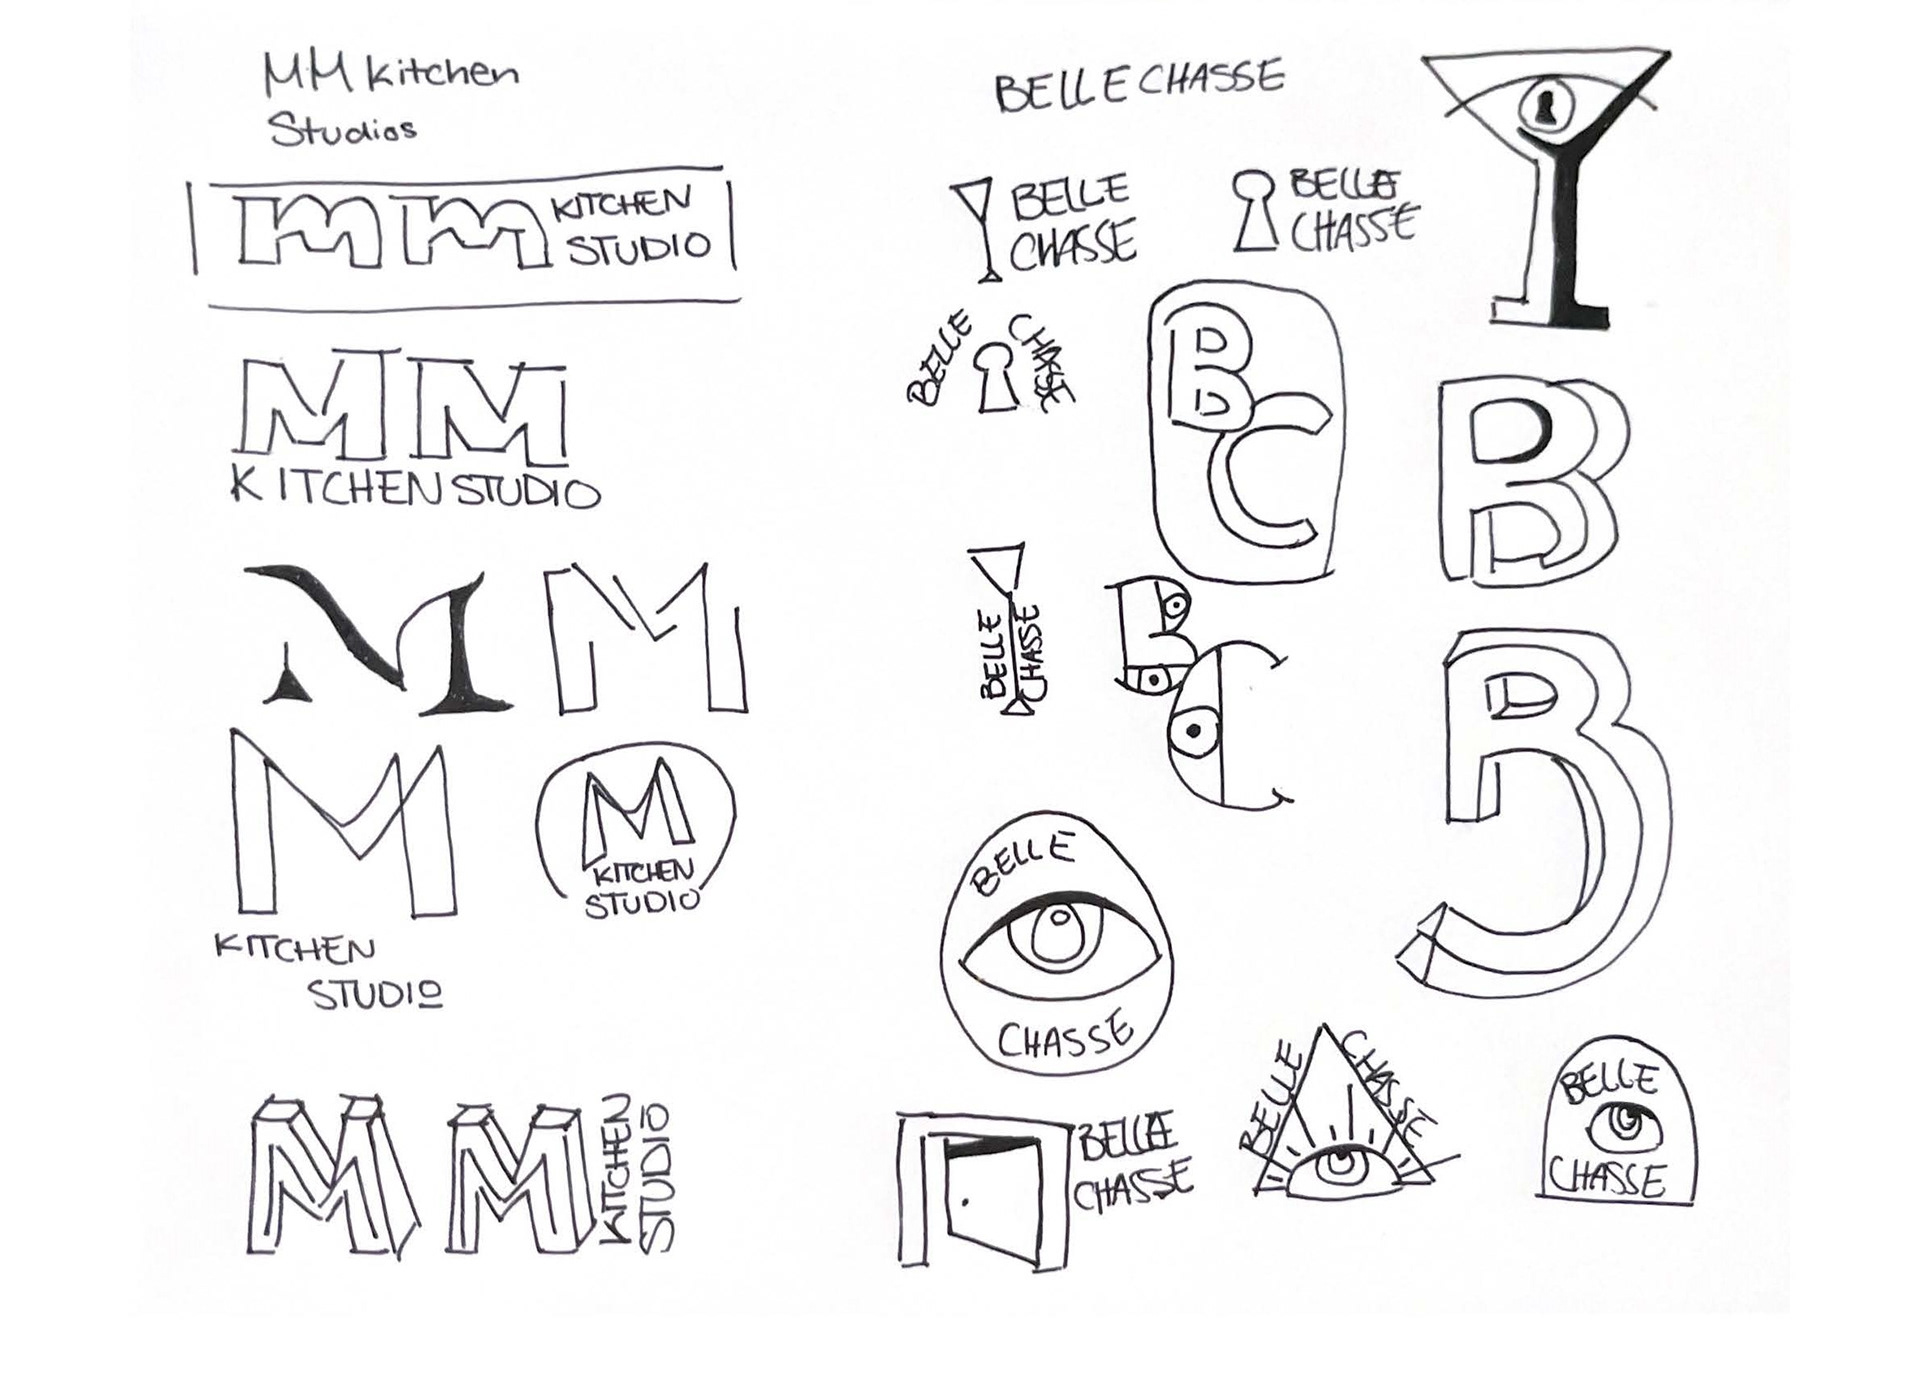 MM Kitchen
Studios
MM KITCHEN
STUDIO
MM
KITCHEN STUDIO
M M
M
KITCHEN
STUDIO
M
KITCHEN
STUDIO
MM KITCHEN
STUDIO
BELLE CHASSE
BELLE
CHASSE
BELLE
CHASSE
BELLE CHASSE
B
C
B
BELLE
CHASSE
B
C
B
BELLE
CHASSE
BELLE
CHASSE
BELLE
CHASSE
BELLE
CHASSE